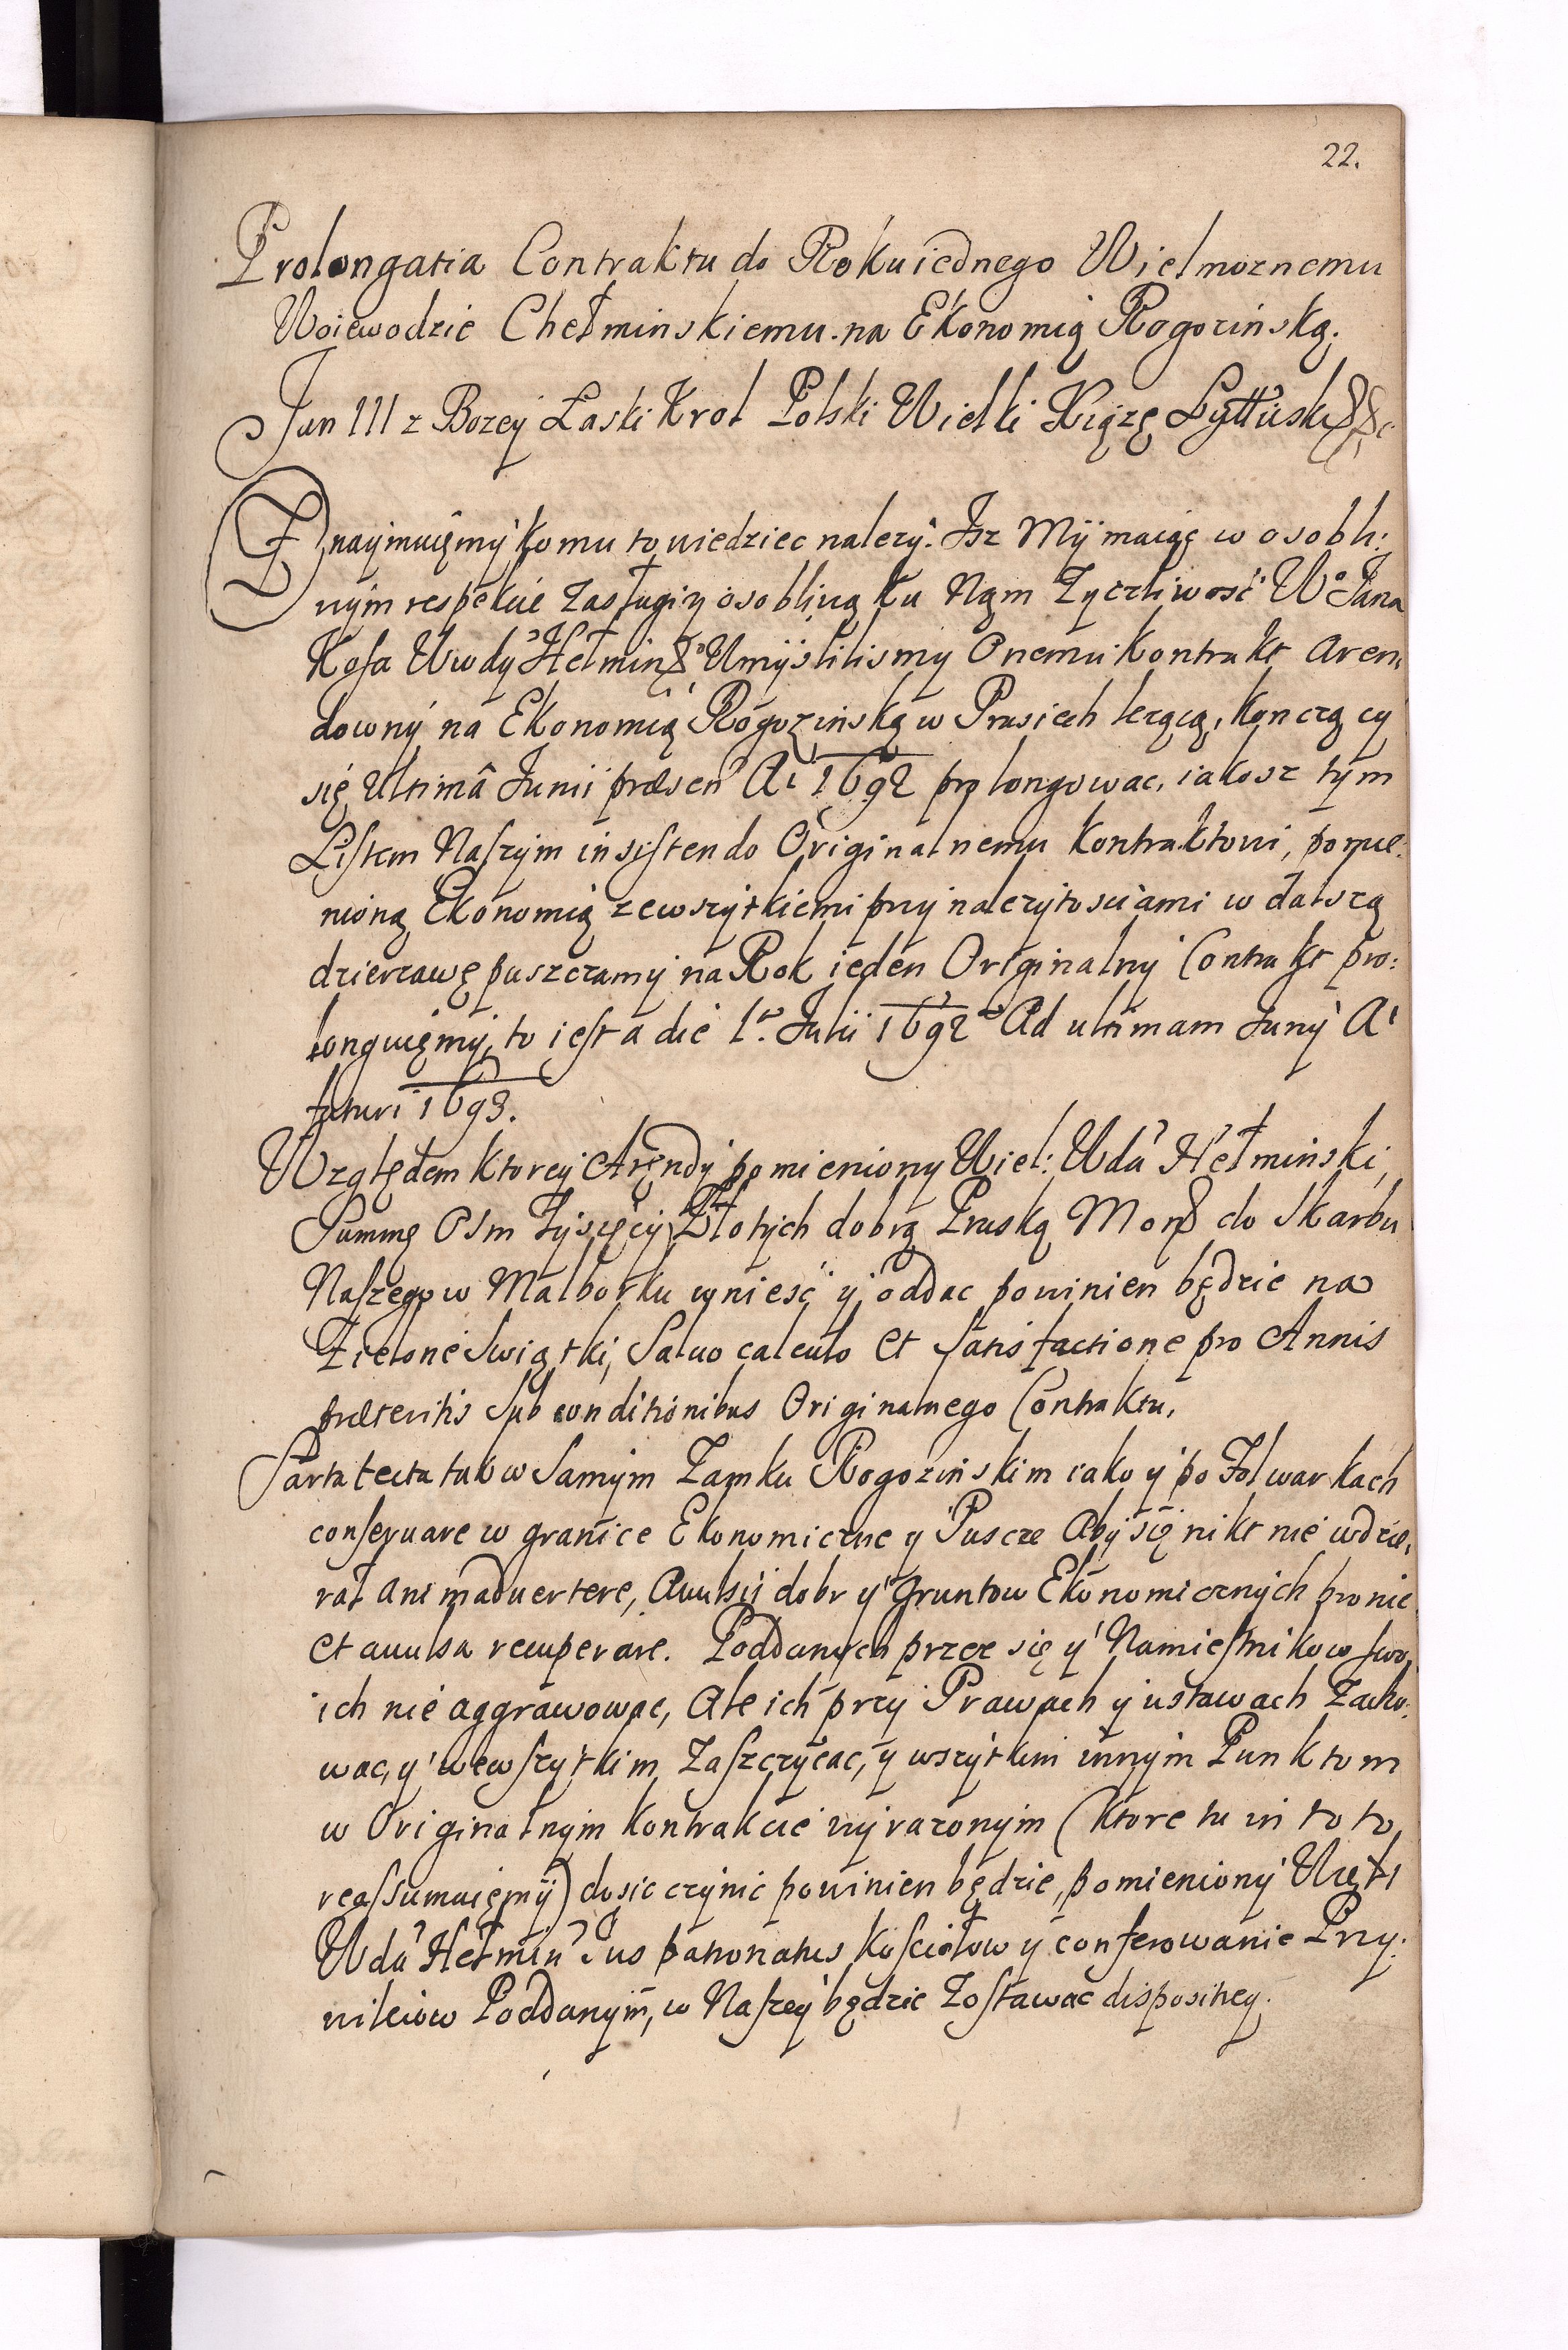 22.
Prolongatia Contraktu do Roku iednego Wielmoznemu
Woiewodzie Chełminskiemu na Ekonomią Rogozinską.
Jan III z Bozey Łaski Krol Polski Wielki Xiążę Lyttüski &&c
Znaÿmuięmÿ komu to wiedziec nalezÿ. Isz Mÿ maiąc w osobli:
wÿm respekcie Zasługi y osobliwą ku Nąm Zyczliwość Wo Jana
Kosa Wwdÿ Hełminso Umÿslilismy Onemu Kontrakt Aren,
downÿ na Ekonomią Rogozinską w Prusiech lezącą, kończący
się Ultimâ Junii præsen Ai 1692 prolongowac, iakosz tÿm
Listem Naszÿm insistendo Originalnemu Kontraktowi, pomie:
nioną Ekonomią zewszÿtkiemi przÿnalezÿtosciami w dalszą
dzierzawę puszczamÿ na Rok ieden Originalnÿ Contrakt pro:
longuięmÿ, to iest a die 1a Julii 1692 Ad ultimam Junÿ Ai
futuri 1693.
Względem ktoreÿ Aręndÿ pomieniony Wiel: Wda Hełminski,
Summę Osm Tÿsięcÿ Złotÿch dobrą Pruską Mon do Skarbu
Naszego w Malborku wnieść ÿ oddac powinien będzie na
Zielone Swiątki, Saluo calculo et satisfactione pro Annis
præteritis sub conditionibus Originalnego Contraktu,
Sarta tecta tak w Samÿm Zamku Rogozinskim iako ÿ po Folwarkach
conseruare w granice Ekonomiczne y Puscze Abÿ się nikt nie wdzie,
rał animaduertere, Auulsÿ dobr ÿ Gruntow Ekonomicznÿch bronic
et auulsa recuperare. Poddanÿch przez się ÿ Namiestnikow swo,
ich nie aggrawowac, Ale ich przÿ Prawach ÿ ustawach Zacho:
wac, ÿ wewszÿtkim Zaszczÿcac, ÿ wszÿtkim innÿm Punktom
w Originalnÿm Kontrakcie wÿrazonÿm (ktore tu in toto
reassumuięmÿ) dosic czÿnic powinien będzie, pomienionÿ
Wda Hełmin Jus patronatus Kosciołow ÿ conferowanie Przÿ:
wileiow Poddanÿm, w Naszeÿ będzie Zostawac dispositieÿ.